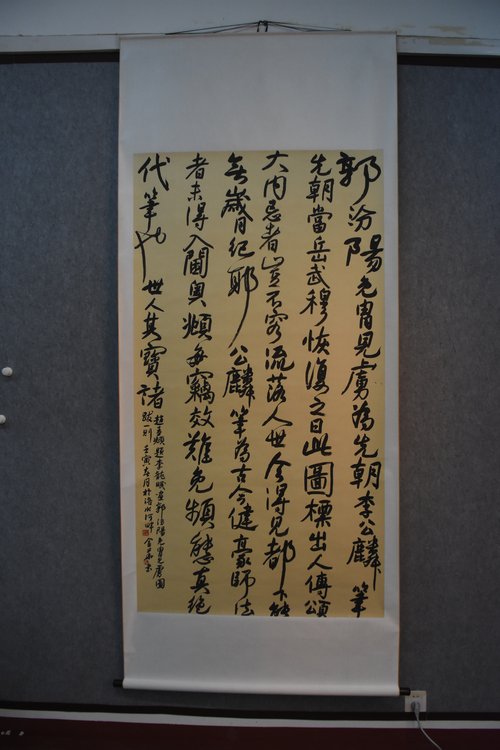 郭汾陽免胄見虜為先朝李公麟筆
先朝當岳武穆恢復之日此圖標出人傳頌
大内忌者豈不容流落人世今得見都下能
無歲月紀耶公麟筆為古今健豪師法
者未得入閫奧頻每竊效難免頻態真絕
代筆也世人其寶諸
趙孟頫題李龍眠畫郭汾陽免胄見虜圖
跋一則壬寅春月於洛水河畔